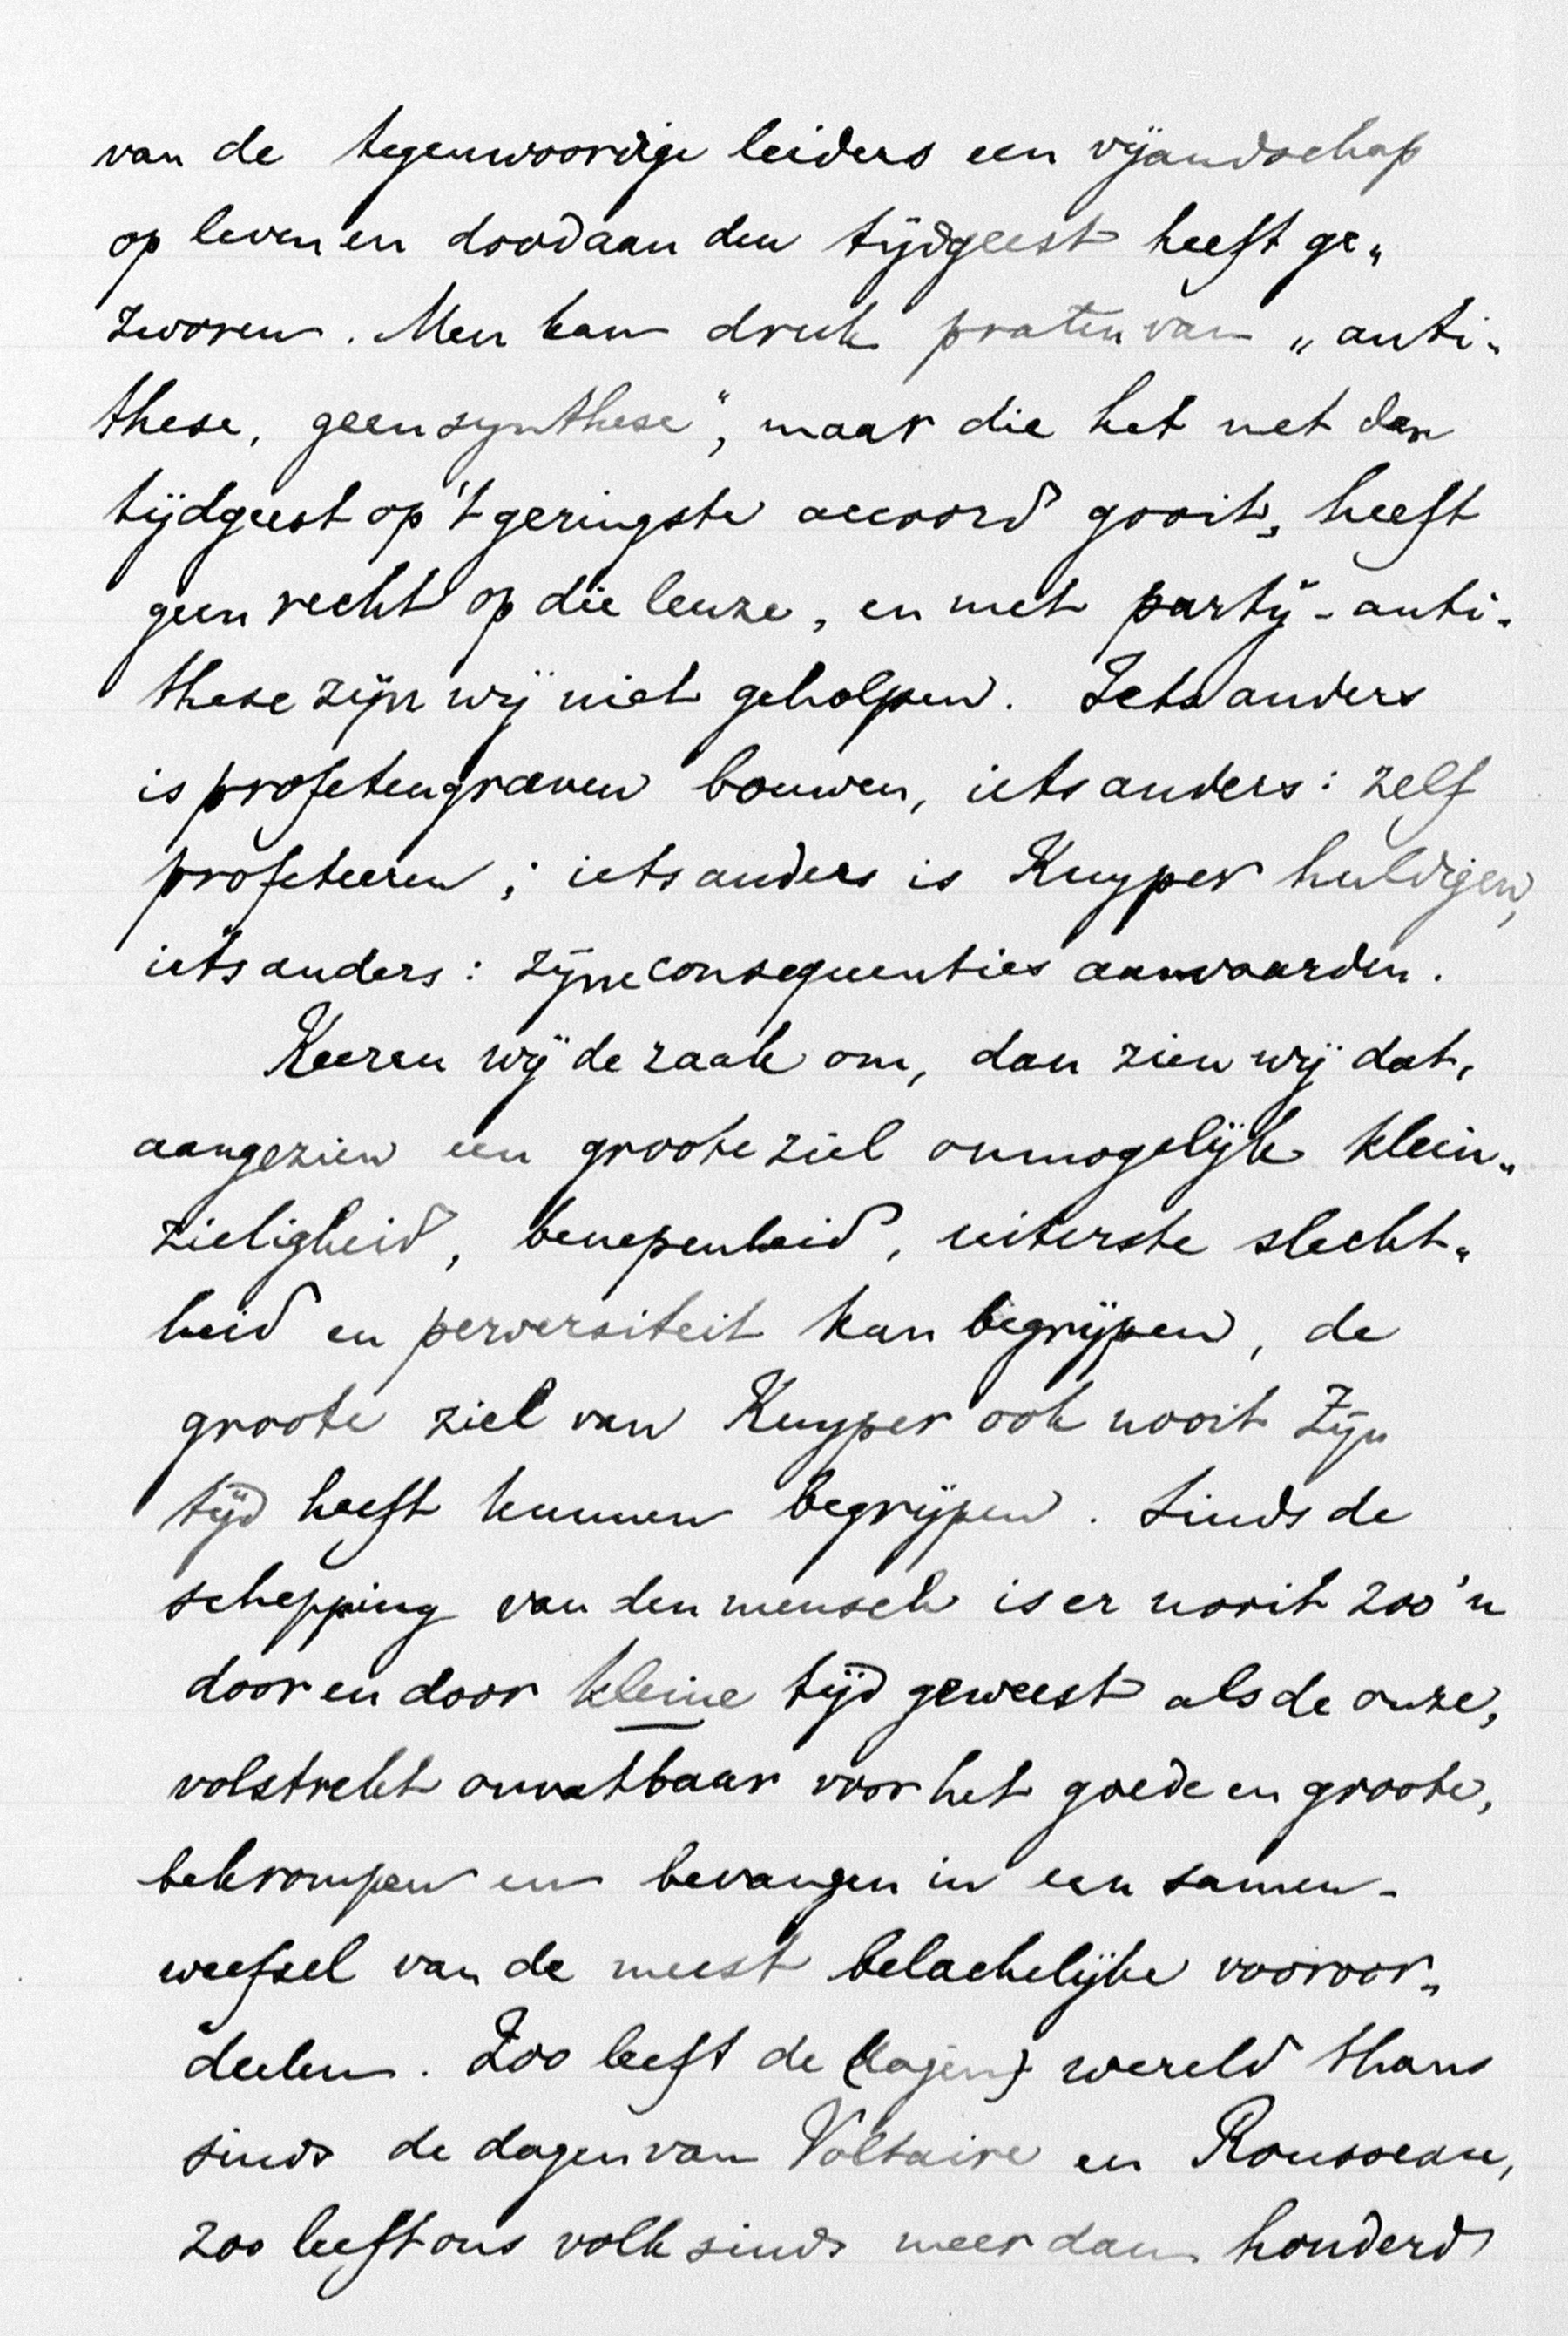 van de tegenwoordige leiders een vijandschap
op leven en dood aan den tijdgeest heeft ge„
zworen. Men kan druk praten van „anti-
these, geen synthese”, maar die het met den
tijdgeest op 't geringste accoord gooit, heeft
geen recht op die leuze, en met partij-anti-
these zijn wij niet geholpen. Iets anders
is profetengraven bouwen, iets anders: zelf
profeteeren; iets anders is Kuyper huldigen,
iets anders: zijne consequenties aanvaarden.
Keeren wij de zaak om, dan zien wij dat,
aangezien een groote ziel onmogelijk klein„
zieligheid, benepenheid, uiterste slecht„
heid en perversiteit kan begrijpen, de
groote ziel van Kuyper ook nooit zijn
tijd heeft kunnen begrijpen. Sinds de
schepping van den mensch is er nooit zoo'n
door en door kleine tijd geweest als de onze,
volstrekt onvatbaar voor het goede en groote,
bekrompen en bevangen in een samen-
weefsel van de meest belachelijke vooroor„
deelen. Zoo leeft de (dagen) wereld thans
sinds de dagen van Voltaire en Rousseau,
zoo leeft ons volk sinds meer dan honderd